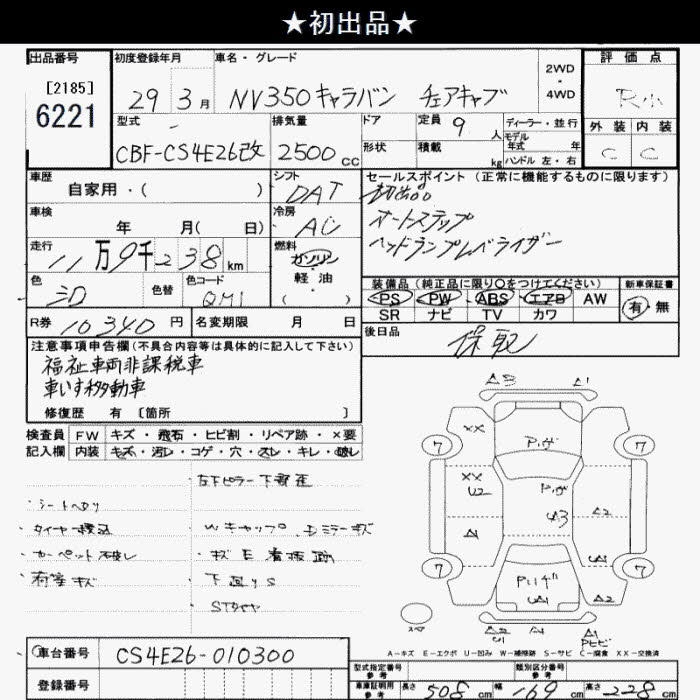 ★初出品★
出品番号
[2185]
6221
初度登録年月
29年3月
車名・グレード
NV350キャラバン チェアキャブ
2WD
・
4WD
評価点
R
外装 内装
C C
型式
CBF-CS4E26改
排気量
2500cc
ドア
形状
定員 9人
積載 kg
ディーラー・並行
モデル年式 年式
ハンドル 左・右
車歴
自家用・( )
シフト
DAT
セールスポイント (正常に機能するものに限ります)
初出品
オートステップ
ヘッドランプレベライザー
車検
年 月( 日)
冷房
AC
走行
11万9千238km
燃料
ガソリン
・
軽油
( )
色
シロ
色替
色コード
QM1
装備品 (純正品に限り○をつけてください)
PS PW ABS エアB AW
SR ナビ TV カワ
新車保証書
有・無
R券 10340円
名変期限 月 日
後日品
保取
注意事項申告欄(不具合内容等は具体的に記入して下さい)
福祉車両非課税車
車いす移動車
修復歴 有 〔箇所 〕
検査員記入欄
FW キズ・飛石・ヒビ割・リペア跡・×要
内装 キズ・汚レ・コゲ・穴・スレ・キレ・破レ
左下ピラー下部歪
・シートヘタリ
・タイヤー積込
・Wキャップ、Dミラーキズ
・カーペット破レ
・キズE看板跡
・荷室キズ
・下廻りS
・STタイヤ
A3 A1
7 7
XX
XX
U2
A1
Pキザ
Pキザ
U3
A2
UA1
7 7
UA1
A2
A2
U1
A1
A1
Pモビ
A-キズ E-エクボ U-凹み W-補修跡 S-サビ C-腐食 XX-交換済
車台番号
CS4E26-010300
登録番号
型式指定番号
類別区分番号
車庫証明用 参考 長さ 508cm 幅 169cm 高さ 228cm